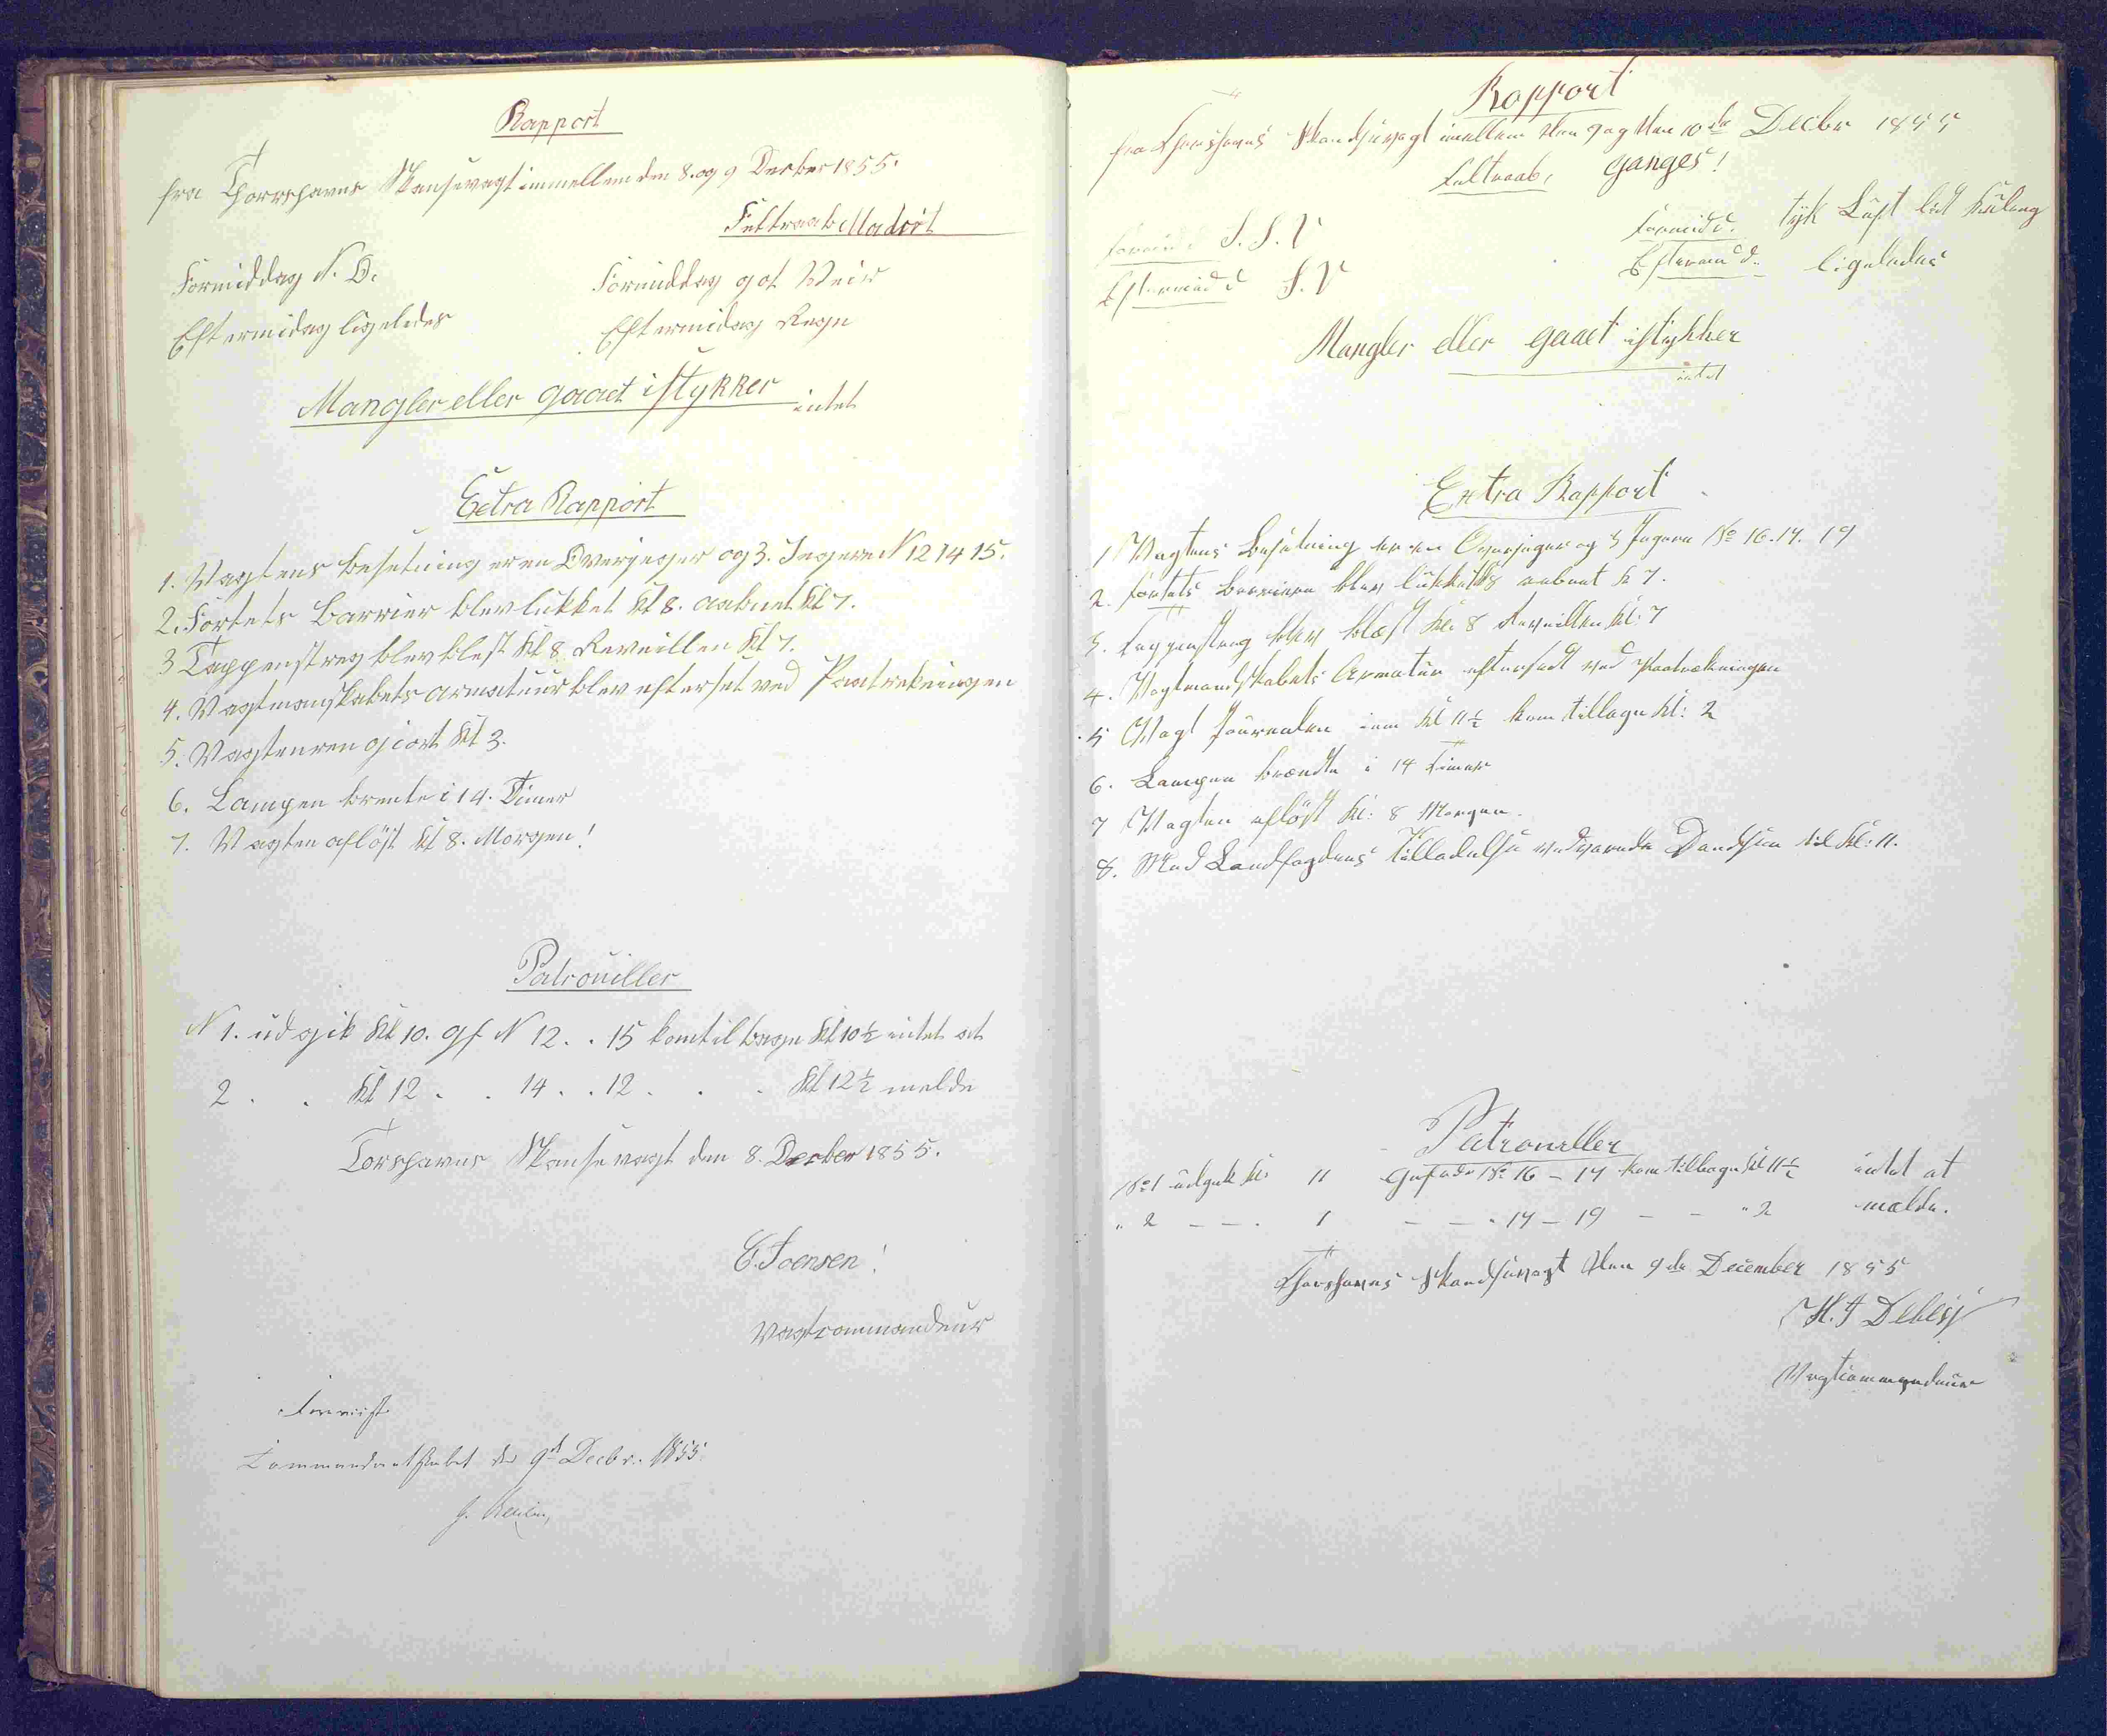 Rapport
fra Thorshavns Skansevagt immellem den 8. og 9 Decber 1855.
Feltraab Madrit
Formiddag N. O.
Formiddag got Veir
Eftermidag ligeledes
Eftermidag Regn
Mangler eller gaaet istykker intet
Extra Rapport
1. Vagtens besetning er en Overjeger og 3. Jegere N 12 14 15.
2. Fortets Barrier blev lukket Kl 8. aabnet Kl 7.
3 Tappenstreg blev blest Kl 8 Reveillen Kl 7.
4. Vagtmanskabets armatuur blev efterset ved Paatrekningen
5. Vagten ren gjort Kl 3.
6. Lampen brente i 14. Timer
7. Vagten afløst Kl 8. Morgen!
Patrouiller
N 1. udgik Kl 10. gf N 12. . 15 kom tilbage Kl 10½ intet at
2 . . Kl 12 . . 14 . . 12 . . . Kl 12½ melde
Torshavns Skansevagt den 8. Decber 1855.
E. Joensen!
Vagtcommandeur
Forevist
Commandantskabet d. 9d Decbr. 1855.
Rapport
fra Thorshavns Skandsevagt imellem den 9 og den 10de Decbr 1855
Feltraab, Ganges!
Formidd. S. S. V
Formidd. tyk Luft lidt Kuling
Eftermidd S. V
Eftermidd. ligeledes
Mangler eller gaaet istykker
intet
Extra Rapport
1 Vagtens Besætning er en Overjæger og 3 Jægere No 16. 17. 19
2. Fortets barriere blev lukket Kl 8 aabnet Kl 7.
3. Tappenstreg blev blæst Kl: 8 Reveillen Kl: 7
4. Vagtmandskabets Armatur efterseet ved Paatrækningen
5 Vagt Journalen inm Kl 11½ kom tilbage Kl: 2
6. Lampen brændte i 14 Timer
7 Vagten afløst Kl: 8 Morgen.
8. Med Landfogdens Tilladelse vedvarede Dandsen til Kl: 11.
Patrouiller
No 1 udgik Kl: 11 Gefade No 16 - 17 kom tilbage Kl 11½ intet at
" 2 - - . 1 - - " 17 - 19 - - " 2 melde.
Thorshavns Skandsevagt den 9de December 1855
H. J Debesj
Vagtcommandeur